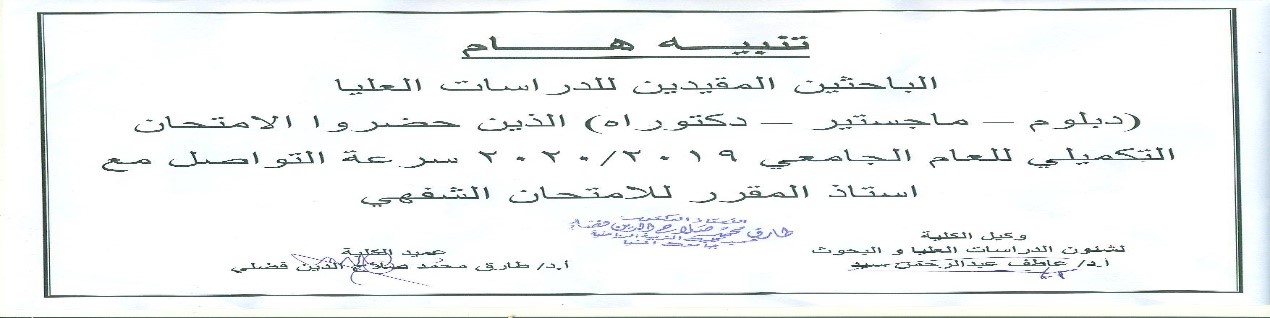 تنبيه هام
الباحثين المقيدين للدراسات العليا
(دبلوم – ماجستير – دكتوراه) الذين حضروا الامتحان
التكميلي للعام الجامعي ٢٠٢٠/٢٠١٩ سرعة التواصل مع
استاذ المقرر للامتحان الشفهي
وكيل الكلية
لشئون الدراسات العليا و البحوث
أ.د/ عاطف عبدالرحمن سيد
طارق محمد صلاح الدين فضلي
عميد الكلية
أ.د/ طارق محمد صلاح الدين فضلي